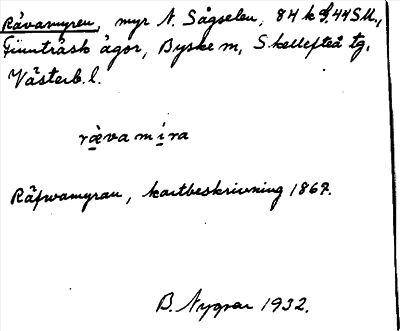 Rävamyren, myr N. Sågselen, 84 k 9, 44 SU.,
Finnträsk ägor, Byske m, Skellefteå tg,
Västerb. l.
rävamira
Räfwamyran, kartbeskrivning 1867.
B. Nygren 1932.